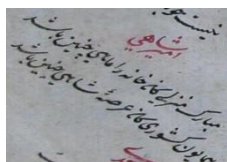 نیست خو
امیر شاهی
مبارک منزلی کانخانه را ماهی چنین باشد
همایون کشوری کان عرصه را شاهی چنین باشد